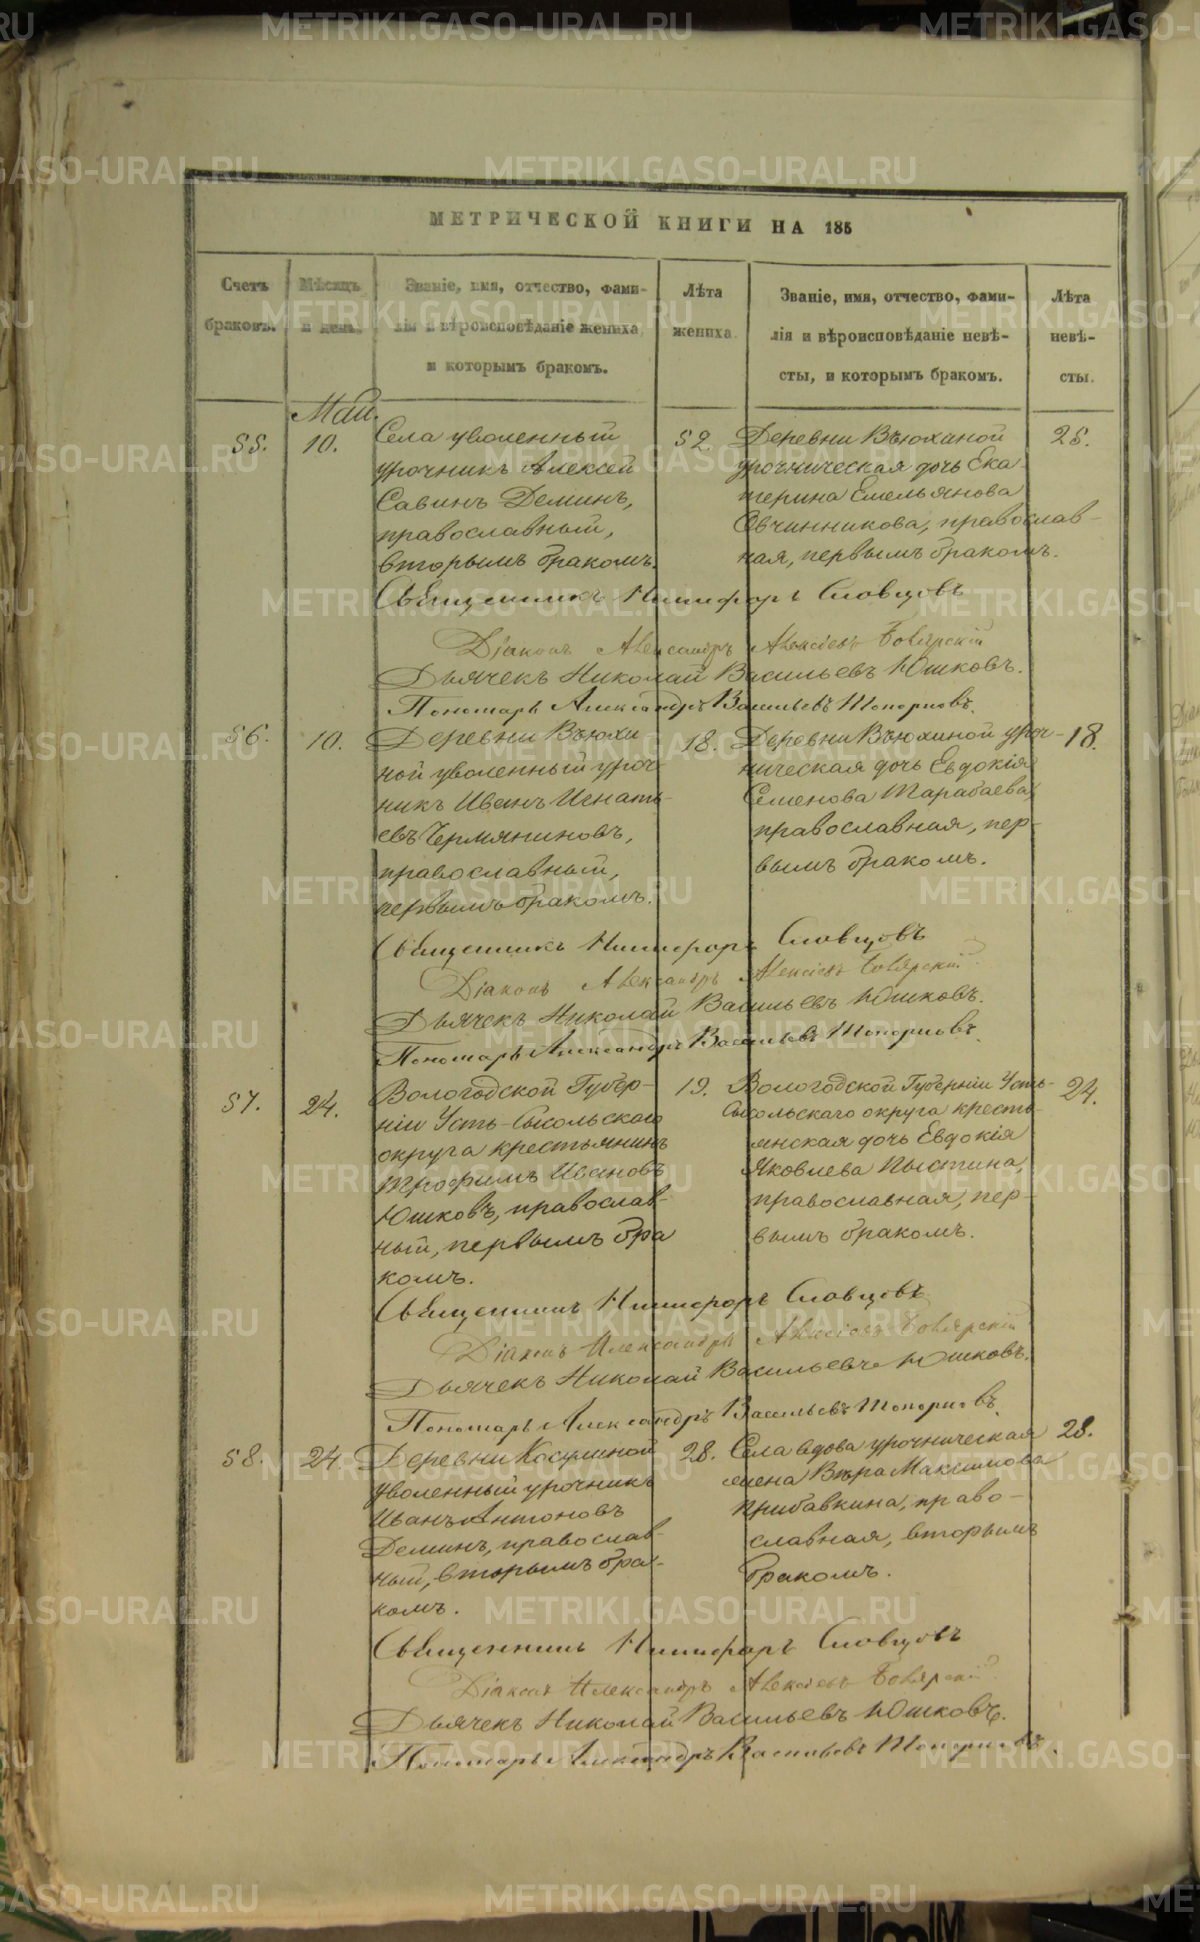 МЕТРИЧЕСКОЙ КНИГИ НА 185
Счетъ браковъ.
Мѣсяцъ и день.
Званіе, имя, отчество, фами-
лія и вѣроисповѣданіе жениха,
и которымъ бракомъ.
Лѣта жениха.
Званіе, имя, отчество, фами-
лія и вѣроисповѣданіе невѣ-
сты, и которымъ бракомъ.
Лѣта невѣ-
сты.
Маій.
55.
10.
Села уволенный
урочникъ Алексей
Савинъ Деминъ,
православный,
вторымъ бракомъ.
52.
Деревни Вьюханой
урочническая дочь Ека-
терина Емельянова
Овчинникова, православ-
ная, первымъ бракомъ.
25.
Священникъ Никифоръ Словцовъ
Діаконъ Александръ Алексіевъ Боярскій
Дьячекъ Николай Васильевъ Юшковъ.
Пономарь Александръ Васильевъ Топорковъ.
56.
10.
Деревни Вьюхи-
ной уволенный уроч-
никъ Иванъ Игнать-
евъ Чермяниновъ,
православный,
первымъ бракомъ.
18.
Деревни Вьюхиной уроч-
ническая дочь Евдокія
Семенова Тарабаева,
православная, пер-
вымъ бракомъ.
18.
Священникъ Никифоръ Словцовъ
Діаконъ Александръ Алексіевъ Боярскій
Дьячекъ Николай Васильевъ Юшковъ.
Пономарь Александръ Васильевъ Топорковъ.
57.
24.
Вологодской Губер-
ніи Усть-Сысольскаго
округа крестьянинъ
Трофимъ Ивановъ
Юшковъ, православ-
ный, первымъ бра
комъ.
19.
Вологодской Губерніи Усть-
Сысольскаго округа кресть-
янская дочь Евдокія
Яковлева Пыстина,
православная, пер-
вымъ бракомъ.
24.
Священникъ Никифоръ Словцовъ
Діаконъ Александръ Алексіевъ Боярскій
Дьячекъ Николай Васильевъ Юшковъ.
Пономарь Александръ Васильевъ Топорковъ.
58.
24.
Деревни Косулиной
уволенный урочникъ
Иванъ Антоновъ
Деминъ, православ-
ный, вторымъ бра-
комъ.
28.
Села вдова урочническая
жена Вѣра Максимова
Прибавкина, право-
славная, вторымъ
бракомъ.
28.
Священникъ Никифоръ Словцовъ
Діаконъ Александръ Алексіевъ Боярскій
Дьячекъ Николай Васильевъ Юшковъ.
Пономарь Александръ Васильевъ Топорковъ.
METRIKI.GASO-URAL.RU